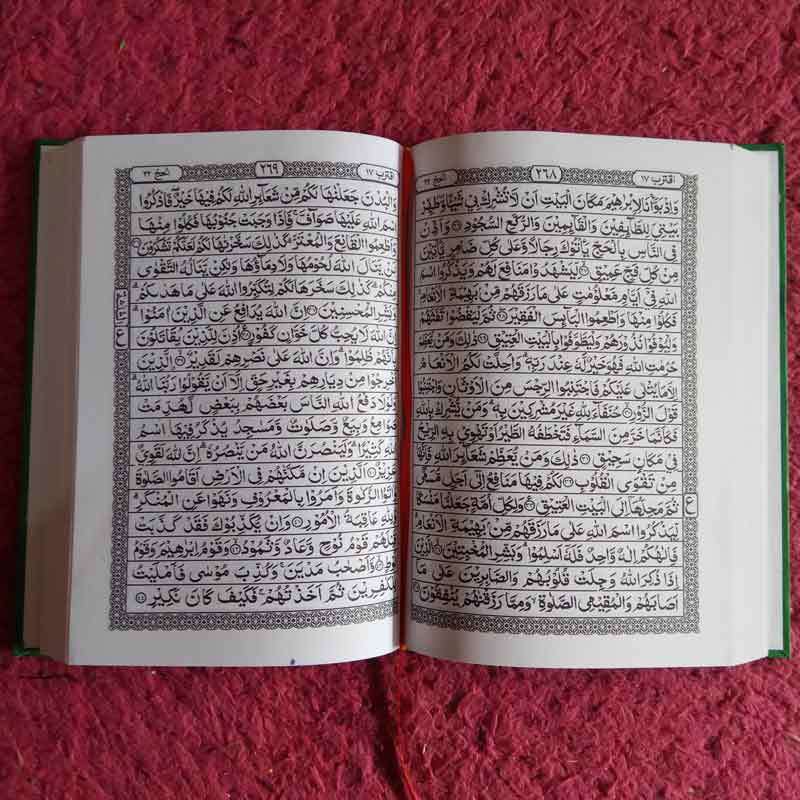 اقترب ١٧
٢٦٨
الحج ٢٢
وَاِذْ بَوَّاْنَا لِاِبْرٰهِيْمَ مَكَانَ الْبَيْتِ اَنْ لَّا تُشْرِكْ بِيْ شَيْـًٔا وَّطَهِّرْ
بَيْتِيَ لِلطَّآئِفِيْنَ وَالْقَآئِمِيْنَ وَالرُّكَّعِ السُّجُوْدِ ۝ وَاَذِّنْ
فِي النَّاسِ بِالْحَجِّ يَاْتُوْكَ رِجَالًا وَّعَلٰى كُلِّ ضَامِرٍ يَّاْتِيْنَ
مِنْ كُلِّ فَجٍّ عَمِيْقٍ ۝ لِّيَشْهَدُوْا مَنَافِعَ لَهُمْ وَيَذْكُرُوا اسْمَ
اللّٰهِ فِيْٓ اَيَّامٍ مَّعْلُوْمٰتٍ عَلٰى مَا رَزَقَهُمْ مِّنْۢ بَهِيْمَةِ الْاَنْعَامِ
فَكُلُوْا مِنْهَا وَاَطْعِمُوا الْبَآئِسَ الْفَقِيْرَ ۝ ثُمَّ لْيَقْضُوْا تَفَثَهُمْ
وَلْيُوْفُوْا نُذُوْرَهُمْ وَلْيَطَّوَّفُوْا بِالْبَيْتِ الْعَتِيْقِ ۝ ذٰلِكَ وَمَنْ يُّعَظِّمْ
حُرُمٰتِ اللّٰهِ فَهُوَ خَيْرٌ لَّهٗ عِنْدَ رَبِّهٖ وَاُحِلَّتْ لَكُمُ الْاَنْعَامُ
اِلَّا مَا يُتْلٰى عَلَيْكُمْ فَاجْتَنِبُوا الرِّجْسَ مِنَ الْاَوْثَانِ وَاجْتَنِبُوْا
قَوْلَ الزُّوْرِ ۝ حُنَفَآءَ لِلّٰهِ غَيْرَ مُشْرِكِيْنَ بِهٖ وَمَنْ يُّشْرِكْ بِاللّٰهِ
فَكَاَنَّمَا خَرَّ مِنَ السَّمَآءِ فَتَخْطَفُهُ الطَّيْرُ اَوْ تَهْوِيْ بِهِ الرِّيْحُ
فِيْ مَكَانٍ سَحِيْقٍ ۝ ذٰلِكَ وَمَنْ يُّعَظِّمْ شَعَآئِرَ اللّٰهِ فَاِنَّهَا
مِنْ تَقْوَى الْقُلُوْبِ ۝ لَكُمْ فِيْهَا مَنَافِعُ اِلٰٓى اَجَلٍ مُّسَمًّى
ثُمَّ مَحِلُّهَآ اِلَى الْبَيْتِ الْعَتِيْقِ ۝ وَلِكُلِّ اُمَّةٍ جَعَلْنَا مَنْسَكًا
لِّيَذْكُرُوا اسْمَ اللّٰهِ عَلٰى مَا رَزَقَهُمْ مِّنْۢ بَهِيْمَةِ الْاَنْعَامِ
فَاِلٰهُكُمْ اِلٰهٌ وَّاحِدٌ فَلَهٗٓ اَسْلِمُوْا وَبَشِّرِ الْمُخْبِتِيْنَ ۝ الَّذِيْنَ
اِذَا ذُكِرَ اللّٰهُ وَجِلَتْ قُلُوْبُهُمْ وَالصّٰبِرِيْنَ عَلٰى مَآ
اَصَابَهُمْ وَالْمُقِيْمِى الصَّلٰوةِ وَمِمَّا رَزَقْنٰهُمْ يُنْفِقُوْنَ ۝
ع
اقترب ١٧
٢٦٩
الحج ٢٢
وَالْبُدْنَ جَعَلْنٰهَا لَكُمْ مِّنْ شَعَآئِرِ اللّٰهِ لَكُمْ فِيْهَا خَيْرٌ فَاذْكُرُوا
اسْمَ اللّٰهِ عَلَيْهَا صَوَآفَّ فَاِذَا وَجَبَتْ جُنُوْبُهَا فَكُلُوْا مِنْهَا
وَاَطْعِمُوا الْقَانِعَ وَالْمُعْتَرَّ كَذٰلِكَ سَخَّرْنٰهَا لَكُمْ لَعَلَّكُمْ تَشْكُرُوْنَ ۝
لَنْ يَّنَالَ اللّٰهَ لُحُوْمُهَا وَلَا دِمَآؤُهَا وَلٰكِنْ يَّنَالُهُ التَّقْوٰى
مِنْكُمْ كَذٰلِكَ سَخَّرَهَا لَكُمْ لِتُكَبِّرُوا اللّٰهَ عَلٰى مَا هَدٰىكُمْ
وَبَشِّرِ الْمُحْسِنِيْنَ ۝ اِنَّ اللّٰهَ يُدَافِعُ عَنِ الَّذِيْنَ اٰمَنُوْا
اِنَّ اللّٰهَ لَا يُحِبُّ كُلَّ خَوَّانٍ كَفُوْرٍ ۝ اُذِنَ لِلَّذِيْنَ يُقَاتَلُوْنَ
بِاَنَّهُمْ ظُلِمُوْا وَاِنَّ اللّٰهَ عَلٰى نَصْرِهِمْ لَقَدِيْرٌ ۝ الَّذِيْنَ
اُخْرِجُوْا مِنْ دِيَارِهِمْ بِغَيْرِ حَقٍّ اِلَّآ اَنْ يَّقُوْلُوْا رَبُّنَا اللّٰهُ
وَلَوْلَا دَفْعُ اللّٰهِ النَّاسَ بَعْضَهُمْ بِبَعْضٍ لَّهُدِّمَتْ
صَوَامِعُ وَبِيَعٌ وَّصَلَوٰتٌ وَّمَسٰجِدُ يُذْكَرُ فِيْهَا اسْمُ
اللّٰهِ كَثِيْرًا وَلَيَنْصُرَنَّ اللّٰهُ مَنْ يَّنْصُرُهٗ اِنَّ اللّٰهَ لَقَوِيٌّ
عَزِيْزٌ ۝ اَلَّذِيْنَ اِنْ مَّكَّنّٰهُمْ فِي الْاَرْضِ اَقَامُوا الصَّلٰوةَ
وَاٰتَوُا الزَّكٰوةَ وَاَمَرُوْا بِالْمَعْرُوْفِ وَنَهَوْا عَنِ الْمُنْكَرِ
وَلِلّٰهِ عَاقِبَةُ الْاُمُوْرِ ۝ وَاِنْ يُّكَذِّبُوْكَ فَقَدْ كَذَّبَتْ
قَبْلَهُمْ قَوْمُ نُوْحٍ وَّعَادٌ وَّثَمُوْدُ ۝ وَقَوْمُ اِبْرٰهِيْمَ وَقَوْمُ
لُوْطٍ ۝ وَّاَصْحٰبُ مَدْيَنَ وَكُذِّبَ مُوْسٰى فَاَمْلَيْتُ
لِلْكٰفِرِيْنَ ثُمَّ اَخَذْتُهُمْ فَكَيْفَ كَانَ نَكِيْرِ ۝